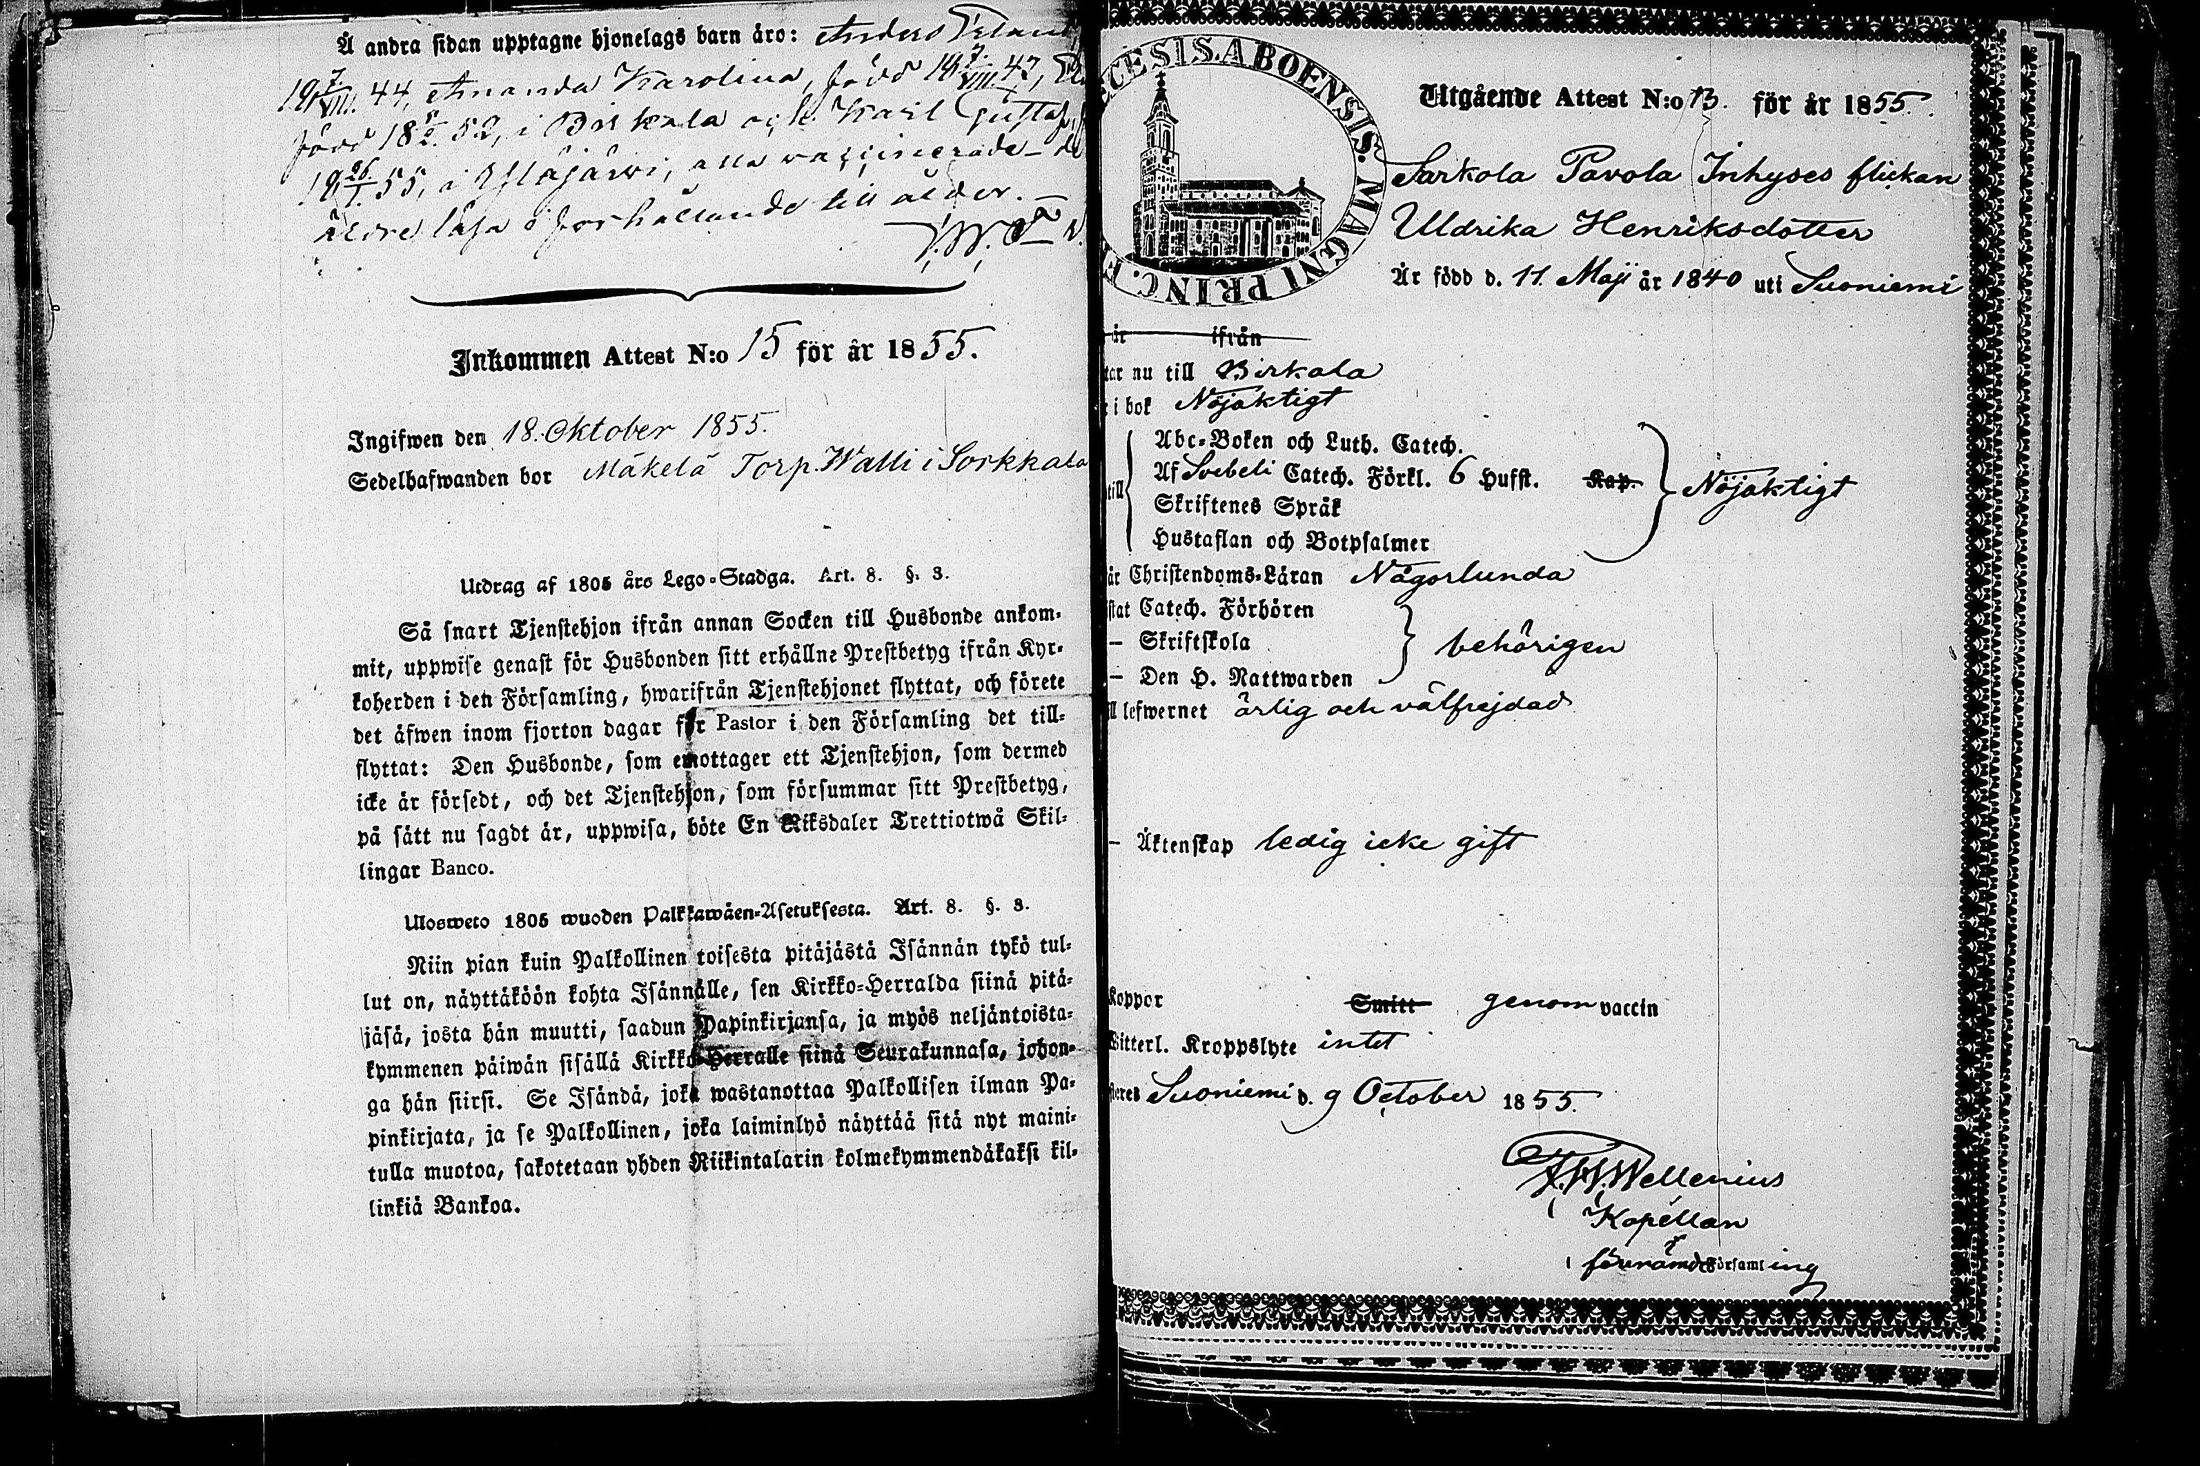 Å andra sidan upptagne hjonelags barn äro: Anders
18 7/VIII 44, Amanda Karolina, född 18 7/VIII 47,
född 18 52, i Birkala och Karl Gustaf,
18 26/1 55, i Ylöjärvi, alla vaccinerade
äldre läsa i förhållande till ålder.
Inkommen Attest N:o 15 för år 1855.
Ingifwen den 18. Oktober 1855.
Sedelhafwanden bor Mäkelä Torp. Walli i Sorkkala
Utdrag af 1805 års Lego-Stadga. Art. 8. §. 3.
Så snart Tjenstehjon ifrån annan Socken till Husbonde ankom-
mit, uppwise genast för Husbonden sitt erhållne Prestbetyg ifrån Kyr-
koherden i den Församling, hwarifrån Tjenstehjonet flyttat, och förete
det äfwen inom fjorton dagar för Pastor i den Församling det till-
flyttat: Den Husbonde, som emottager ett Tjenstehjon, som dermed
icke är försedt, och det Tjenstehjon, som försummar sitt Prestbetyg,
på sätt nu sagdt är, uppwisa, böte En Riksdaler Trettiotwå Skil-
lingar Banco.
Ulosweto 1805 wuoden Palkkawäen-Asetuksesta. Art. 8. §. 3.
Niin pian kuin Palkollinen toisesta pitäjästä Isännän tykö tul-
lut on, näyttäköön kohta Isännälle, sen Kirkko-Herralda siinä pitä-
jäsä, josta hän muutti, saadun Papinkirjansa, ja myös neljäntoista-
kymmenen päiwän sisällä Kirkko-Herralle siinä Seurakunnasa, johon-
ga hän siirsi. Se Isändä, joka wastanottaa Palkollisen ilman Pa-
pinkirjata, ja se Palkollinen, joka laiminlyö näyttää sitä nyt maini-
tulla muotoa, sakotetaan yhden Riikintalarin kolmekymmendäkaksi kil-
linkiä Bankoa.
ECESIS. ABOENSIS. MAGNI PRINC. F
Utgående Attest N:o 13. för år 1855.
Sarkola Pavola Inhyses flickan
Uldrika Henriksdotter
Är född d. 11. Maji år 1840 uti Suoniemi
är ifrån
tar nu till Birkala
r i bok Nöjaktigt
Abc-Boken och Luth. Catech.
till Af Svebeli Catech. Förkl. 6 Hufst. Kap. Nöjaktigt
Skriftenes Språk
Hustaflan och Botpsalmer
är Christendoms-Läran Någorlunda
stat Catech. Förhören
— Skriftskola behörigen
— Den H. Nattwarden
ll lefwernet ärlig och välfrejdad
— Äktenskap ledig icke gift
Koppor Smitt genom vaccin
Witterl. Kroppslyte intet
steres Suoniemi d. 9 October 1855.
F. W. Wellenius
Kapellan
i förenämde Församling